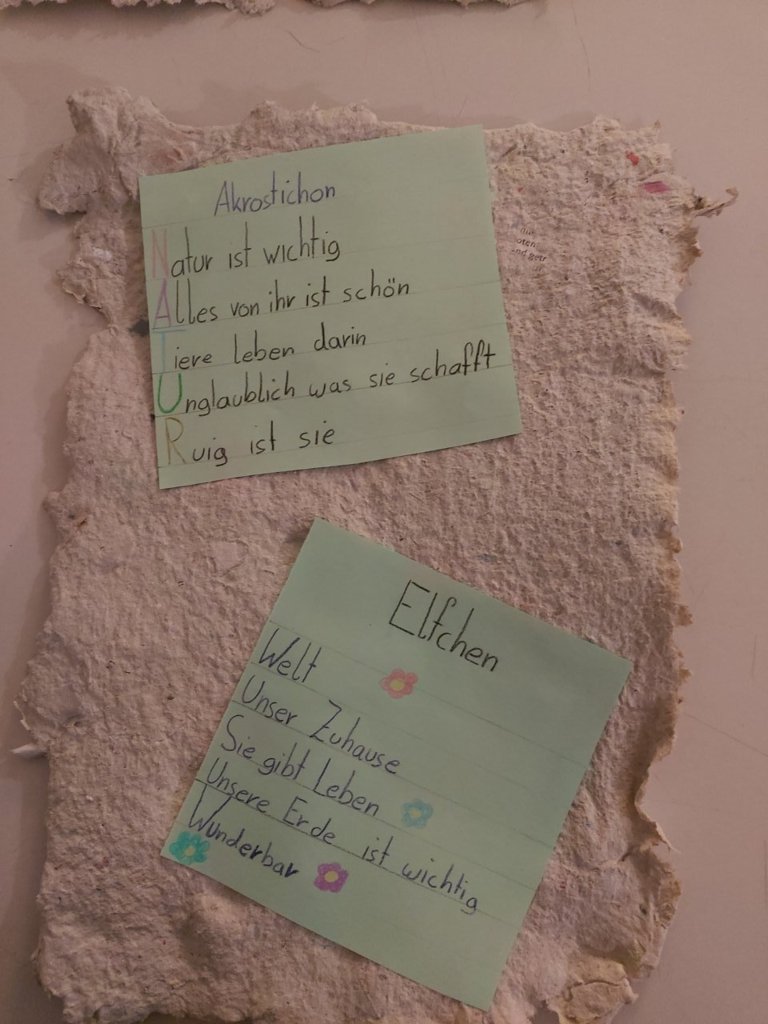 Akrostichon
Natur ist wichtig
Alles von ihr ist schön
Tiere leben darin
Unglaublich was sie schafft
Ruig ist sie
Elfchen
Welt
Unser Zuhause
Sie gibt Leben
Unsere Erde ist wichtig
Wunderbar